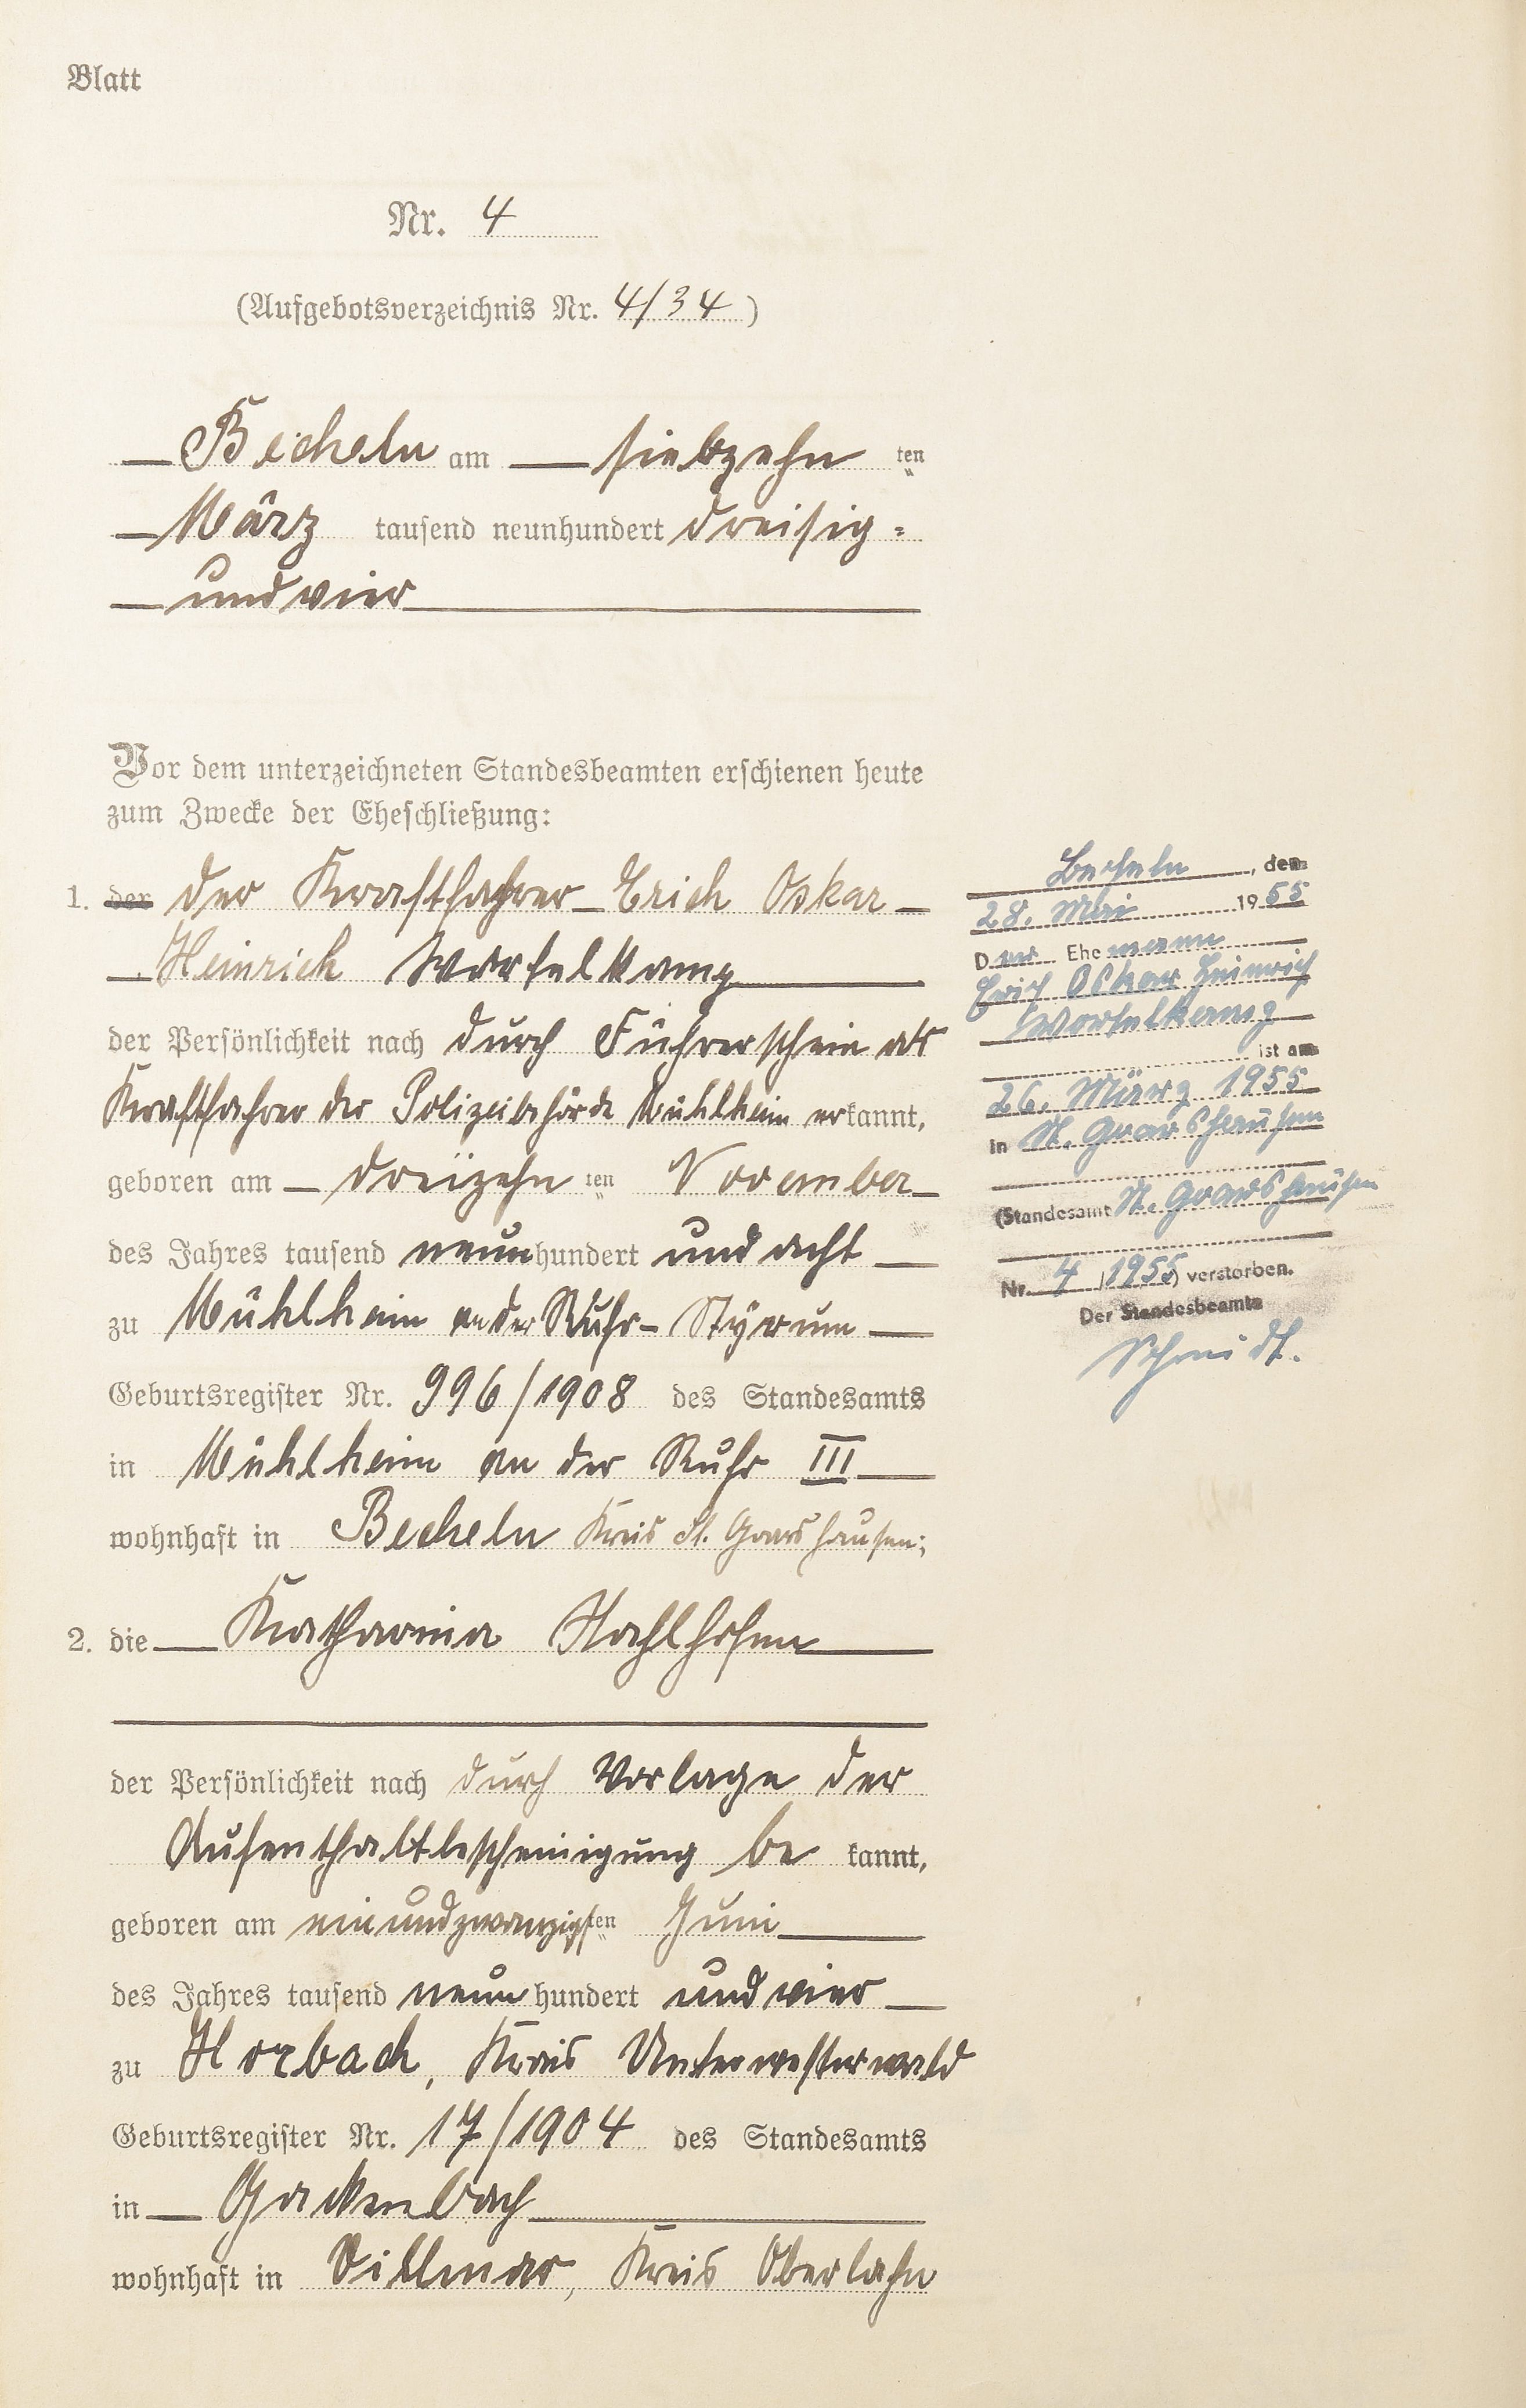 Blatt
Nr. 4
(Aufgebotsverzeichnis Nr. 4/34)
Becheln am siebzehn ten
März tausend neunhundert dreisig=
undvier
Vor dem unterzeichneten Standesbeamten erschienen heute
zum Zwecke der Eheschließung:
1. der der Kraftfahrer Erich Oskar
Heinrich Worfelkamp
der Persönlichkeit nach durch Führerschein als
Kraftfahrer der Polizeibehörde Mühlheim erkannt,
geboren am dreizehn ten November
des Jahres tausend neunhundert und acht
zu Mühlheim an der Ruhr-Styrum
Geburtsregister Nr. 996/1908 des Standesamts
in Mühlheim an der Ruhr III
wohnhaft in Becheln Kreis St. Goarshausen;
2. die Katharina Stahlhofen
der Persönlichkeit nach durch Vorlage der
Aufenthaltbescheinigung be kannt,
geboren am einundzwanzigsten Juni
des Jahres tausend neun hundert und vier
zu Horbach, Kreis Unterwesterwald
Geburtsregister Nr. 17/1904 des Standesamts
in Gackenbach
wohnhaft in Villmar, Kreis Oberlahn
Becheln, den
28. Mai 1955
Der Ehemann
Erich Oskar Heinrich
Worfelkamp
ist am
26. März 1955
in St. Goarshausen
(Standesamt St. Goarshausen
Nr. 4/1955) verstorben.
Der Standesbeamte
Schmidt.